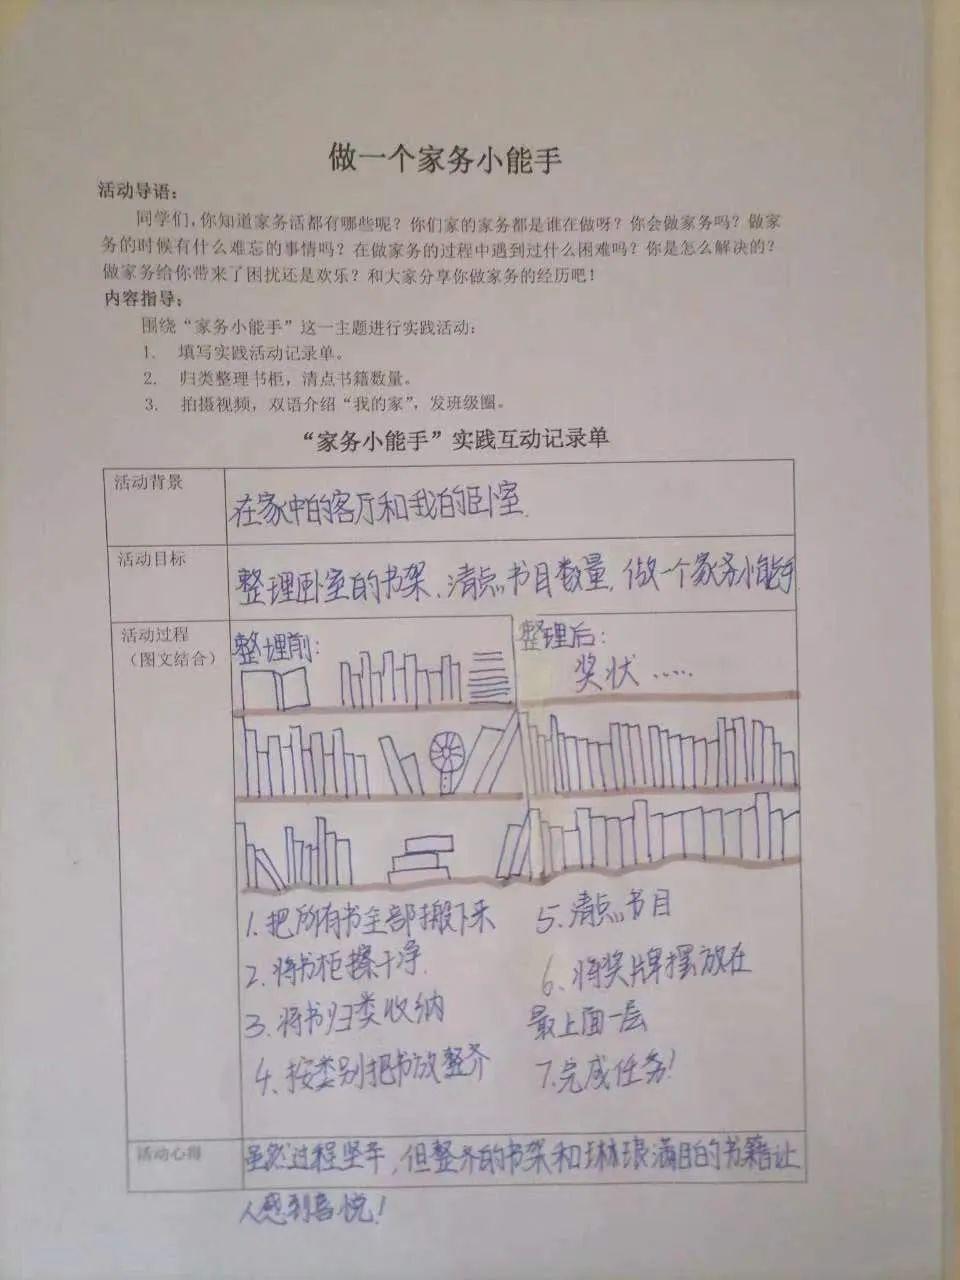 做一个家务小能手
活动导语：
同学们，你知道家务活都有哪些呢？你们家的家务都是谁在做呀？你会做家务吗？做家
务的时候有什么难忘的事情吗？在做家务的过程中遇到过什么困难吗？你是怎么解决的？
做家务给你带来了困扰还是欢乐？和大家分享你做家务的经历吧！
内容指导：
围绕“家务小能手”这一主题进行实践活动：
1. 填写实践活动记录单。
2. 归类整理书柜，清点书籍数量。
3. 拍摄视频，双语介绍“我的家”，发班级圈。
“家务小能手”实践互动记录单
活动背景
在家中的客厅和我的卧室.
活动目标
整理卧室的书架、清点书目数量，做一个家务小能手
活动过程
（图文结合）
整理前：
整理后：
奖状……
1.把所有书全部搬下来
2.将书柜擦干净.
3.将书归类收纳
4、按类别把书放整齐
5.清点书目
6、将奖牌摆放在
最上面一层
7.完成任务！
活动心得
虽然过程坚辛，但整齐的书架和琳琅满目的书籍让
人感到喜悦！